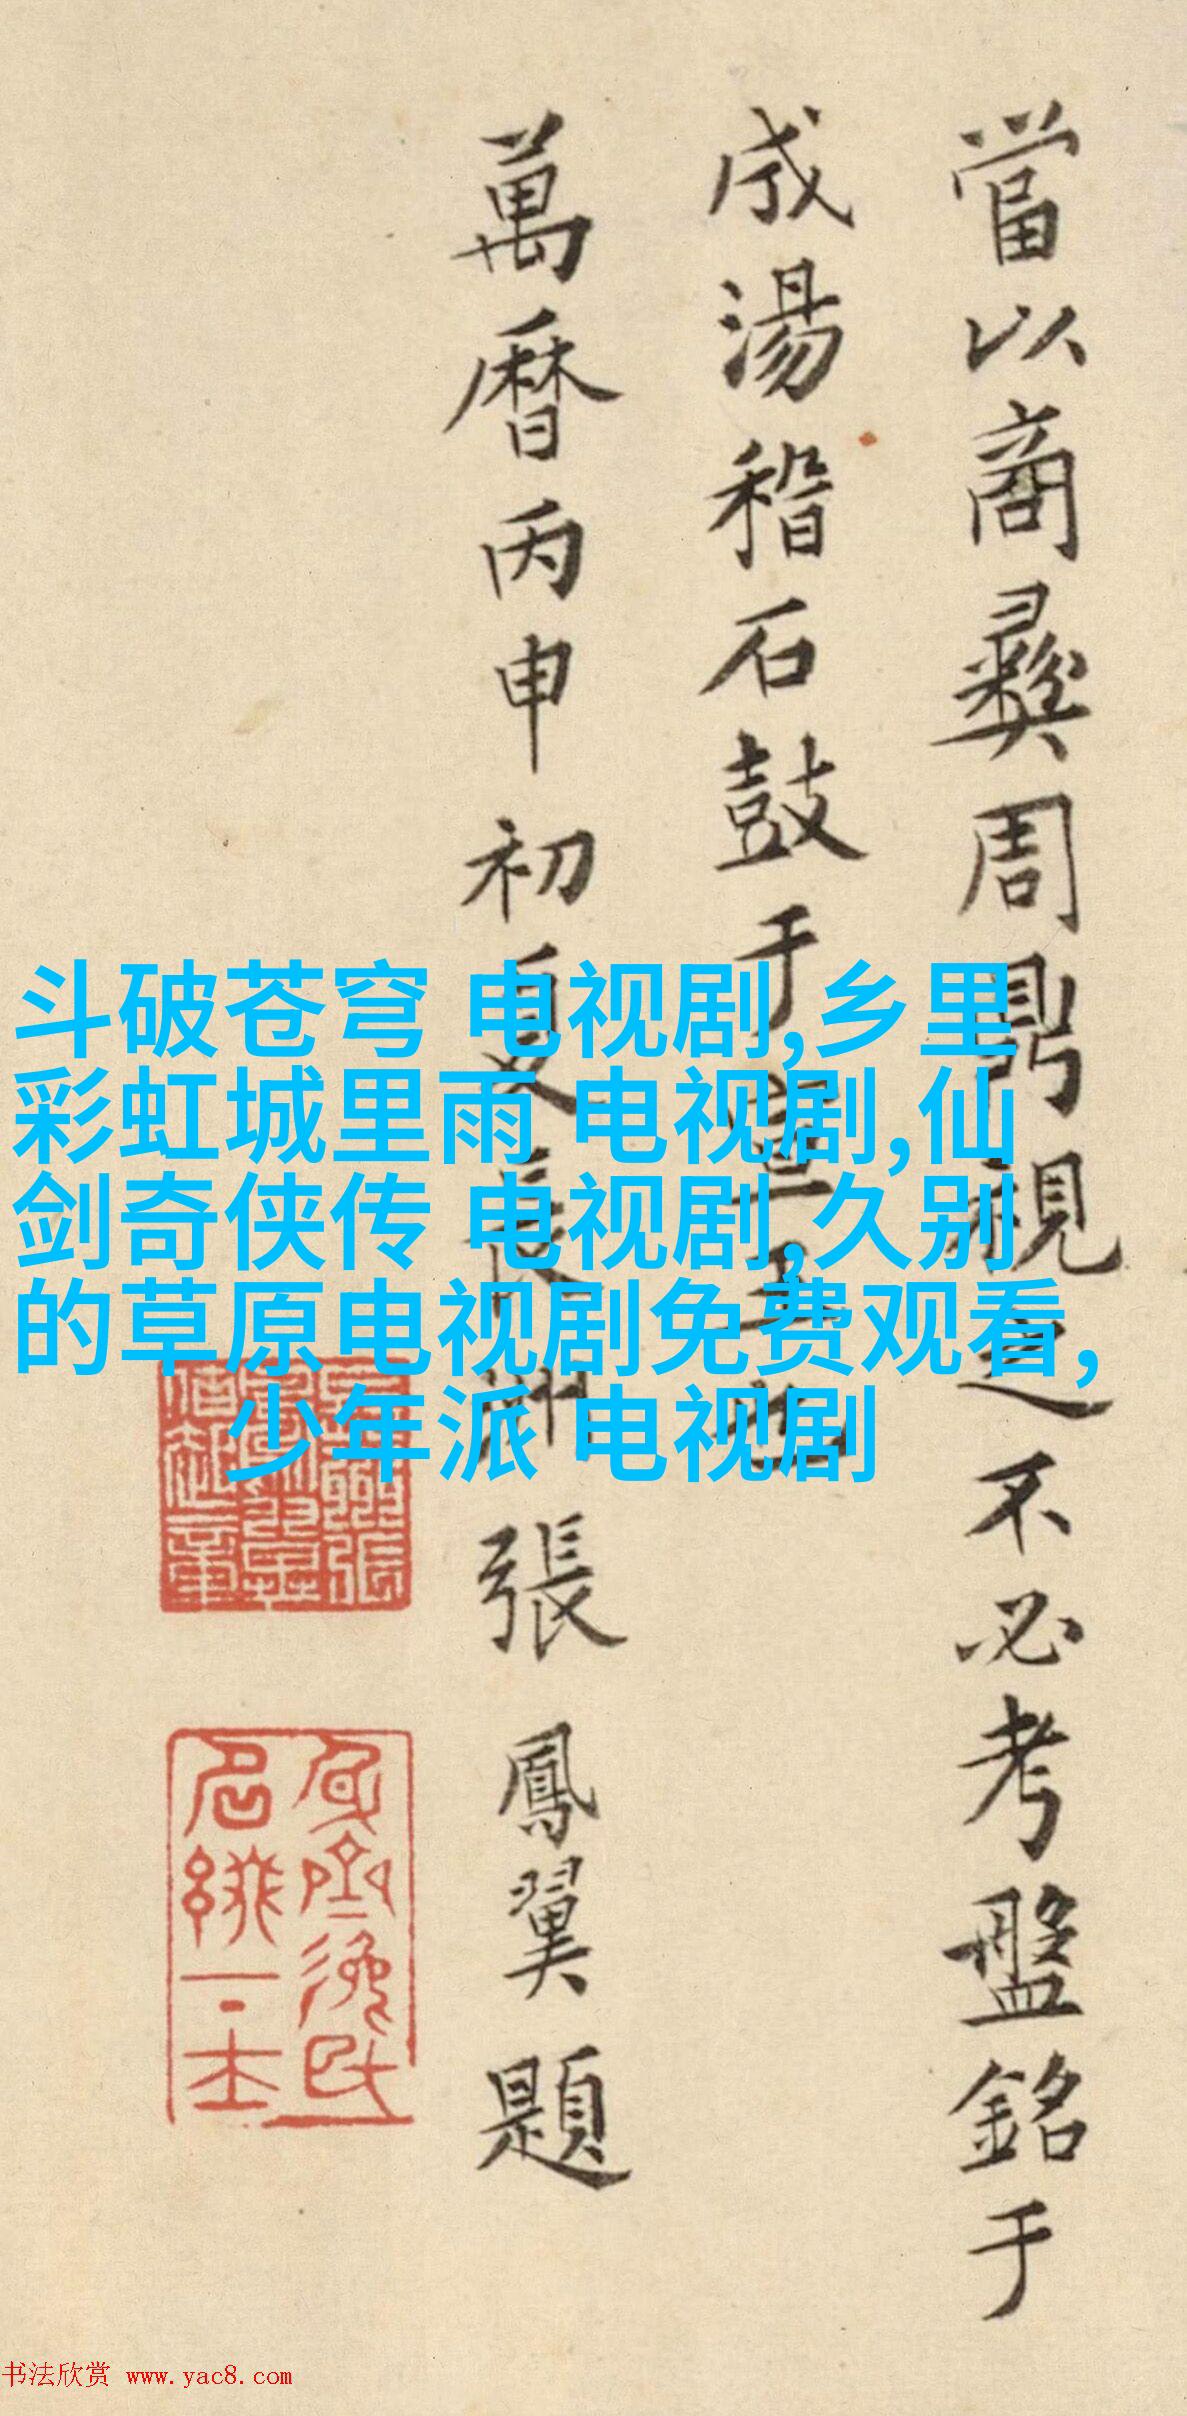 當以商彝周鼎視之不必考盤銘于
成湯稽石鼓于宣王也
萬曆丙申初夏長洲張鳳翼題
斗破苍穹 电视剧,乡里
彩虹城里雨 电视剧,仙
剑奇侠传 电视剧,久别
的草原电视剧免费观看,
少年派 电视剧
书法欣赏 www.yac8.com